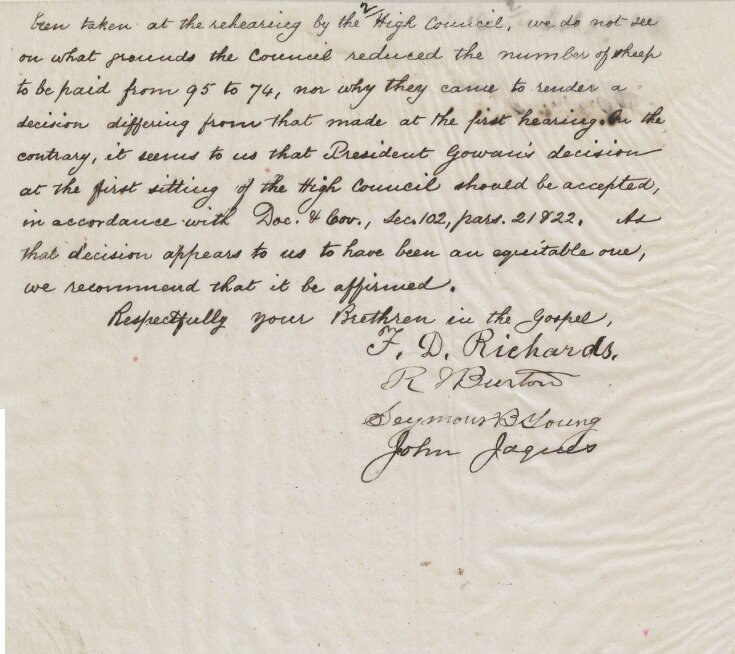 been taken at the rehearing by the 2 High Council, we do not see
on what grounds the Council reduced the number of sheep
to be paid from 95 to 74, nor why they came to render a
decision differing from that made at the first hearing. On the
contrary, it seems to us that President Gowan's decision
at the first sitting of the High Council should be accepted,
in accordance with Doc. & Cov., Sec. 102, pars. 21 & 22. As
that decision appears to us to have been an equitable one,
we recommend that it be affirmed.
Respectfully your Brethren in the Gospel,
F. D. Richards.
R T Burton
Seymour B Young
John Jaques